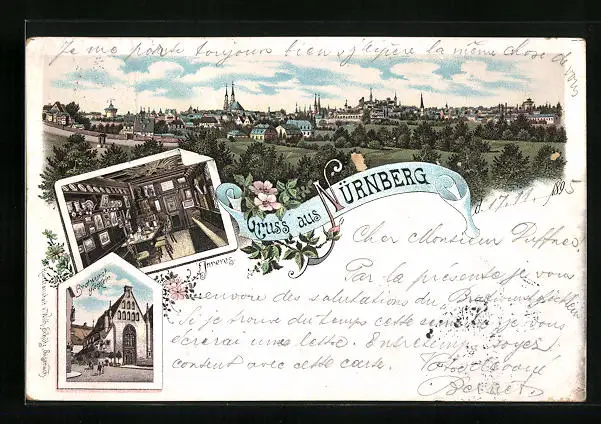 Je me porte toujours bien & j'espère la même chose de
vous
Gruss aus NÜRNBERG
d. 17. 11. 1895
Inneres
Bratwurst
Glöcklein
Cher Monsieur
Par la présente je vous
envoie des salutations du Bratwurstglöcklein
Si je trouve du temps cette semaine, je vous
écrirai une lettre. Entretemps soyez
content avec cette carte.
Votre dévoué